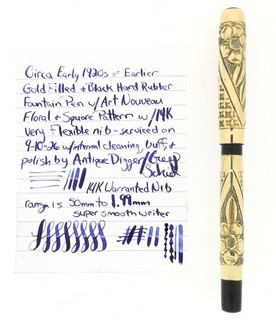 Circa Early 1920s or Earlier
Gold Filled & Black Hard Rubber
Fountain Pen w/ Art Nouveau
Floral & Square Pattern w/ 14K
very Flexible nib - serviced on
9-10-26 w/ internal cleaning, buff, &
polish by Antique Digger/
14K Warranted Nib
range is .50mm to 1.99mm
super smooth writer